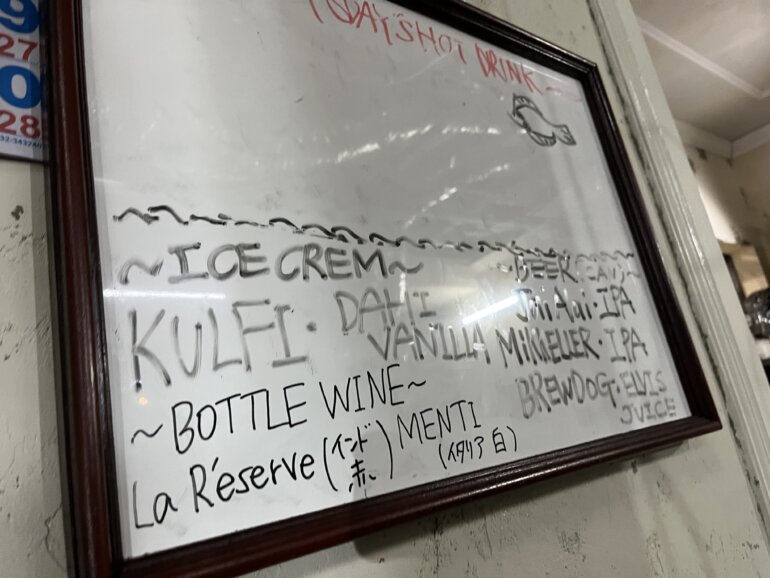 9
27
0
28
DAY'SHOT DRINK
~ICE CREM~
KULFI・DAHI
VANILLA
~BOTTLE WINE~
La Réserve (インド 赤)
MENTI
(イタリア 白)
BEER
・IPA
MIKKELLER・IPA
BREWDOG・ELVIS
JUICE